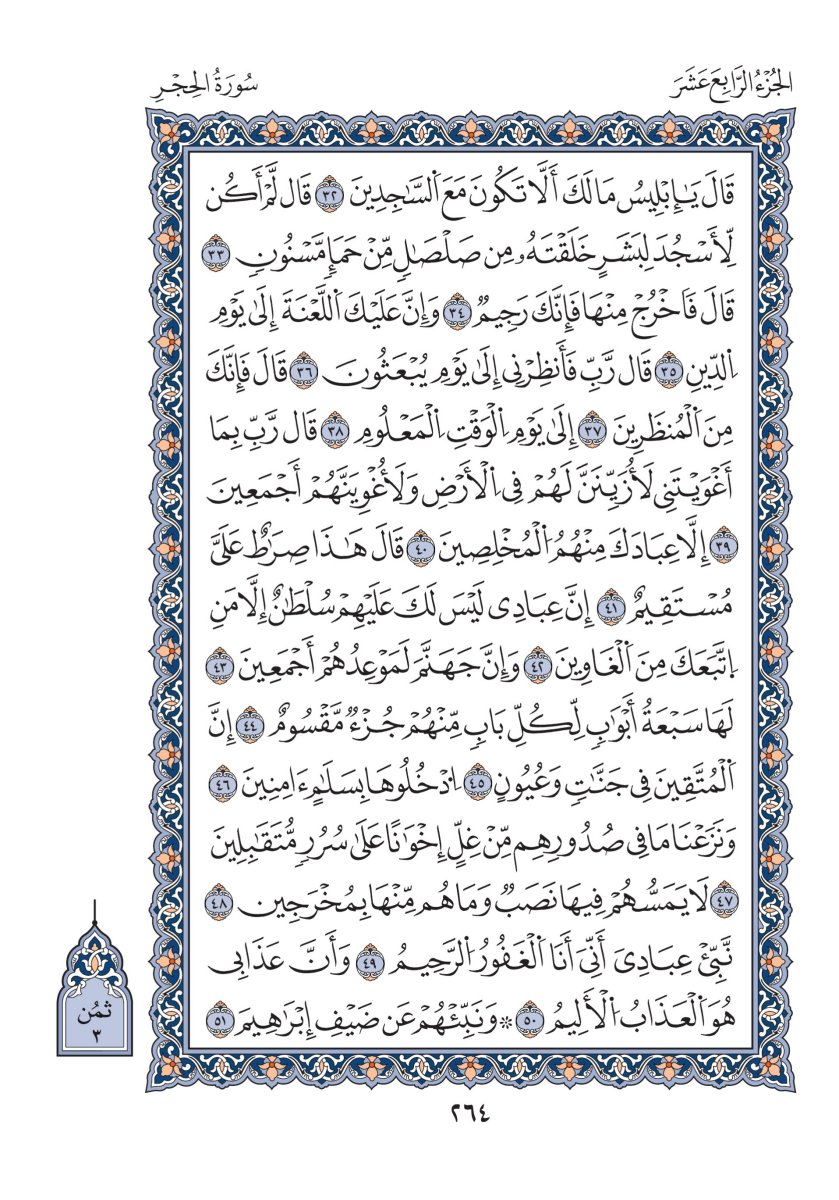 الجُزْءُ الرَّابِعَ عَشَرَ
سُورَةُ الحِجْرِ
قَالَ يَٰٓإِبْلِيسُ مَا لَكَ أَلَّا تَكُونَ مَعَ اَلسَّٰجِدِينَ ٣٢ قَال لَّمْ أَكُن
لِّأَسْجُدَ لِبَشَرٍ خَلَقْتَهُۥ مِن صَلْصَٰلٍ مِّنْ حَمَإٍ مَّسْنُونٍ ٣٣
قَالَ فَاخْرُجْ مِنْهَا فَإِنَّكَ رَجِيمٌ ٣٤ وَإِنَّ عَلَيْكَ اَللَّعْنَةَ إِلَىٰ يَوْمِ
اِلدِّينِ ٣٥ قَال رَّبِّ فَأَنظِرْنِي إِلَىٰ يَوْمِ يُبْعَثُونَ ٣٦ قَالَ فَإِنَّكَ
مِنَ اَلْمُنظَرِينَ ٣٧ إِلَىٰ يَوْمِ اِلْوَقْتِ اِلْمَعْلُومِ ٣٨ قَال رَّبِّ بِمَا
أَغْوَيْتَنِي لَأُزَيِّنَنَّ لَهُمْ فِي اِلْأَرْضِ وَلَأُغْوِيَنَّهُمْ أَجْمَعِينَ
٣٩ إِلَّا عِبَادَكَ مِنْهُمُ اُلْمُخْلِصِينَ ٤٠ قَالَ هَٰذَا صِرَٰطٌ عَلَيَّ
مُسْتَقِيمٌ ٤١ إِنَّ عِبَادِي لَيْسَ لَكَ عَلَيْهِمْ سُلْطَٰنٌ إِلَّا مَنِ
اِتَّبَعَكَ مِنَ اَلْغَاوِينَ ٤٢ وَإِنَّ جَهَنَّمَ لَمَوْعِدُهُمْ أَجْمَعِينَ ٤٣
لَهَا سَبْعَةُ أَبْوَٰبٍ لِّكُلِّ بَابٍ مِّنْهُمْ جُزْءٌ مَّقْسُومٌ ٤٤ إِنَّ
اَلْمُتَّقِينَ فِي جَنَّٰتٍ وَعُيُونٍ ٤٥ اِدْخُلُوهَا بِسَلَٰمٍ ءَامِنِينَ ٤٦
وَنَزَعْنَا مَا فِي صُدُورِهِم مِّنْ غِلٍّ إِخْوَٰنًا عَلَىٰ سُرُرٍ مُّتَقَٰبِلِينَ
٤٧ لَا يَمَسُّهُمْ فِيهَا نَصَبٌ وَمَا هُم مِّنْهَا بِمُخْرَجِينَ ٤٨
نَبِّئْ عِبَادِيَ أَنِّيَ أَنَا اَلْغَفُورُ اُلرَّحِيمُ ٤٩ وَأَنَّ عَذَابِي
هُوَ اَلْعَذَابُ اُلْأَلِيمُ ٥٠ ۞ وَنَبِّئْهُمْ عَن ضَيْفِ إِبْرَٰهِيمَ ٥١
ثمُن
٣
٢٦٤